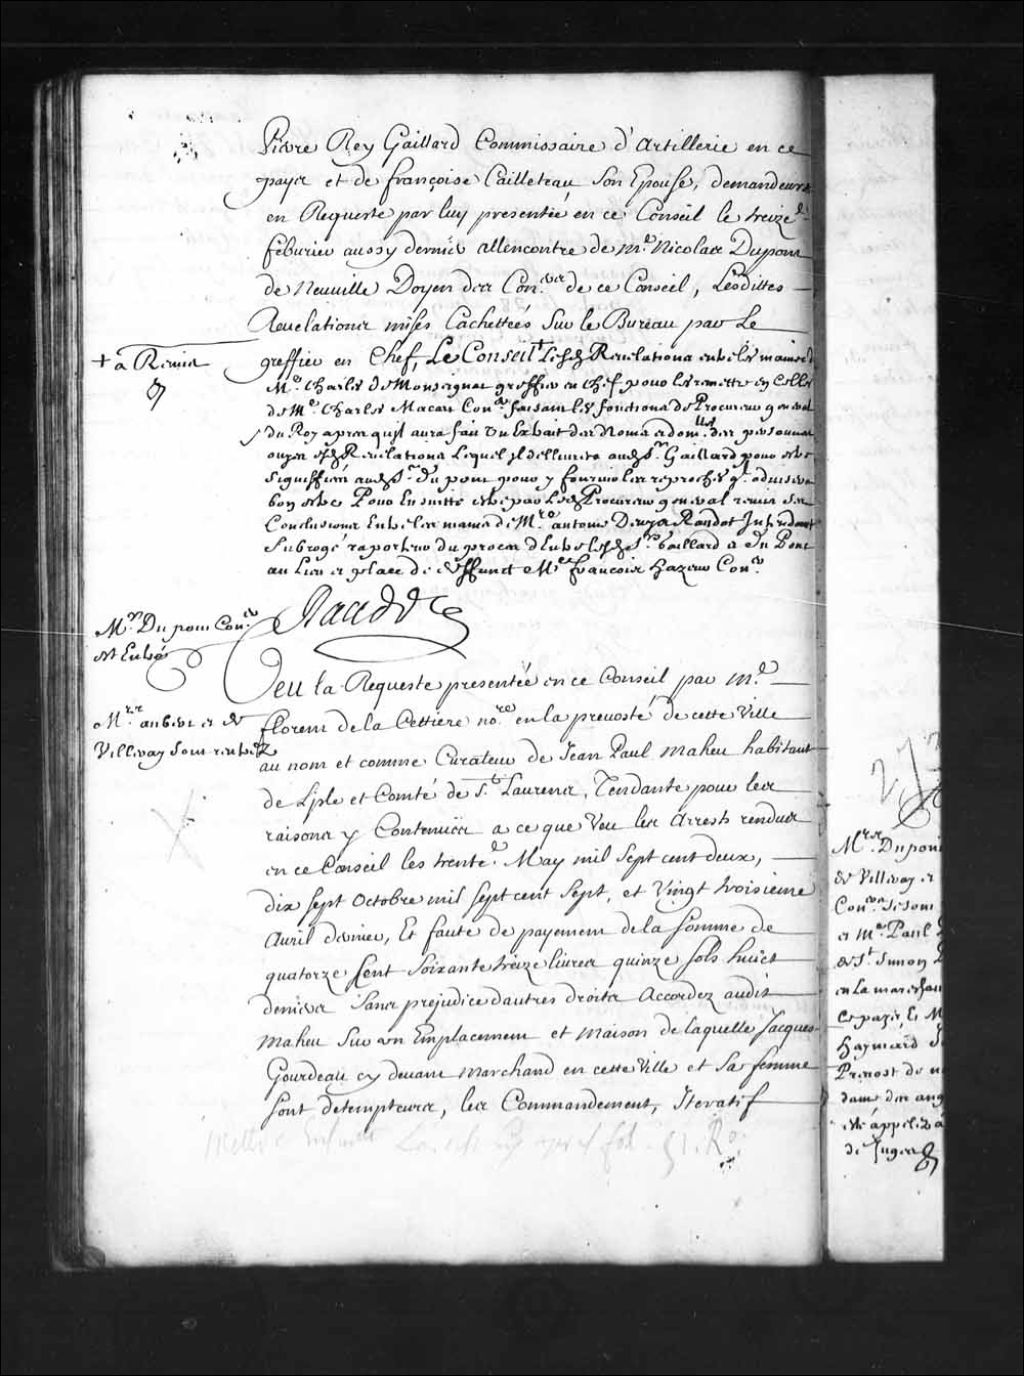 Pierre Rey Gaillard Commissaire d'Artillerie en ce
payx et de françoise Cailleteau Son Epouse, demandeurs
en Requeste par luy presentée en ce Conseil le treize.e
feburier aussy dernier allencontre de m.e Nicolas Dupont
de Neuville Doyen des Con.ers de ce Conseil, Lesdittes
Reuelations mises Cachettées Sur le Bureau par Le
greffier en Chef, Le Conseil + Lesd. Reuelations entre les mains d
+ à Remis
M.e Charles de Monseignat greffier en Chef pour les remettre en Celles
de M.e Charles Macart Con.er faisant les fonctions de Procureur general
du Roy apres quil aura fait Un Extrait des Noms et dom.lles des personnes
ouyes esd. Reuelations Lequel il dellivrera aud. S.r Gaillard pour estre
Signiffiéz aud. S.r Du pont pour y fournir les reproches q. aduisera
bon estre Pour Ensuitte estre par Led. Procureur general remis Ses
Conclusions Entre les mains de M.re antoine Denys Raudot Intendant
Subrogé raporteur du proces d'Entre lesd. S.rs Gaillard & Du Pont
au Lieu et place de deffunct M.e francois hazeur Con.er
Raudot
M.r Du pont Con.er
est Entré
Veu la Requeste presentée en ce Conseil par m.e
florent de la Cettiere no.re en la preuosté de cette Ville
M.rs aubert et de
Villeray sont rentréz
au nom et comme Curateur de Jean Paul maheu habitant
de L'isle et Comté de S.t Laurens, Tendante pour les
raisons y Contenües a ce que Veu les Arrests rendus
en ce Conseil les trente.e May mil Sept cent deux,
dix sept Octobre mil sept cent Sept, et Vingt troisieme
Auril dernier, Et faute de payement de la Somme de
quatorze Cent Soixante treize liures quinze Sols huict
deniers Sans prejudice d'autres droits Accordez audit
Maheu Sur un Emplacement et maison de laquelle Jacques
Gourdeau cy deuant Marchand en cette Ville et Sa femme
sont detempteurs, les Commandement, Iteratif
fol. 51. R.o
M.rs Dupont
de Villeray et
Con.ers Se sont
et M.e Paul
de S.t Simon
en La mareschau
Ce païs, Et M
Haymard
Preuost de n
dame des ang
esté appeléz
de Juges